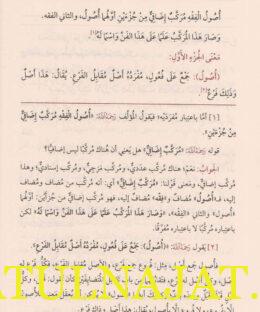 أُصُولُ الْفِقْهِ مُرَكَّبٌ إِضَافِيٌّ مِنْ جُزْءَيْنِ أَوَّلُهُمَا أُصُولٌ، وَالثَّانِي الفقه.
وَصَارَ هَذَا الْمُرَكَّبُ عَلَمًا عَلَى هَذَا الْفَنِّ وَاسْمًا لَهُ[١].
مَعْنَى الْجُزْءِ الْأَوَّلِ:
(أُصُولٌ): جَمْعٌ عَلَى فُعُولٍ، مُفْرَدُهُ أَصْلٌ مُقَابِلُ الْفَرْعِ. يُقَالُ: هَذَا أَصْلٌ
وَذَلِكَ فَرْعٌ[٢].
[١] أمَّا باعتبار مفردَيْه فيقولُ المؤلِّف رحمه الله: «أُصُولُ الْفِقْهِ مُرَكَّبٌ إِضَافِيٌّ
مِنْ جُزْءَيْنِ».
قوله رحمه الله: «مُرَكَّبٌ إِضَافِيٌّ» هل يعني أن هناك مُركَّبًا ليس إضافيًّا؟
الجوابُ: نعم؛ هناك مُركَّب عدديٌّ، ومُركَّب مَزجيٌّ، ومُركَّب إسناديٌّ؛ وهذا
مُركَّب إضافيٌّ، ومعنى قولنا: «مُركَّب إضافيٌّ» أي أنه مركَّب من مُضاف ومُضاف
إليه، فـ«أُصُول» مُضاف و«الفِقْهِ» مُضاف إليه، فهو مُركَّب إضافيٌّ من جُزأين، أوَّلهما
«أُصول» والثاني «فقه»، «وَصَارَ هَذَا الْمُرَكَّبُ عَلَمًا عَلَى هَذَا الْفَنِّ وَاسْمًا لَهُ» لكن
باعتباره مُركَّبًا لا باعتباره مُفرَدًا.
[٢] يقول رحمه الله: «(أُصُولٌ): جَمْعٌ عَلَى فُعُولٍ، مُفْرَدُهُ أَصْلٌ مُقَابِلُ الْفَرْعِ».
فأُصول جمع أصل، مثل: فُروع جمع فرع، والأصل مقابل الفرع
ATULNAJAT